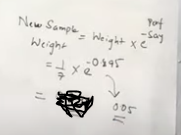 New Sample Weight = Weight × e^-Say
= 1/7 × e^-0.895
= 0.05